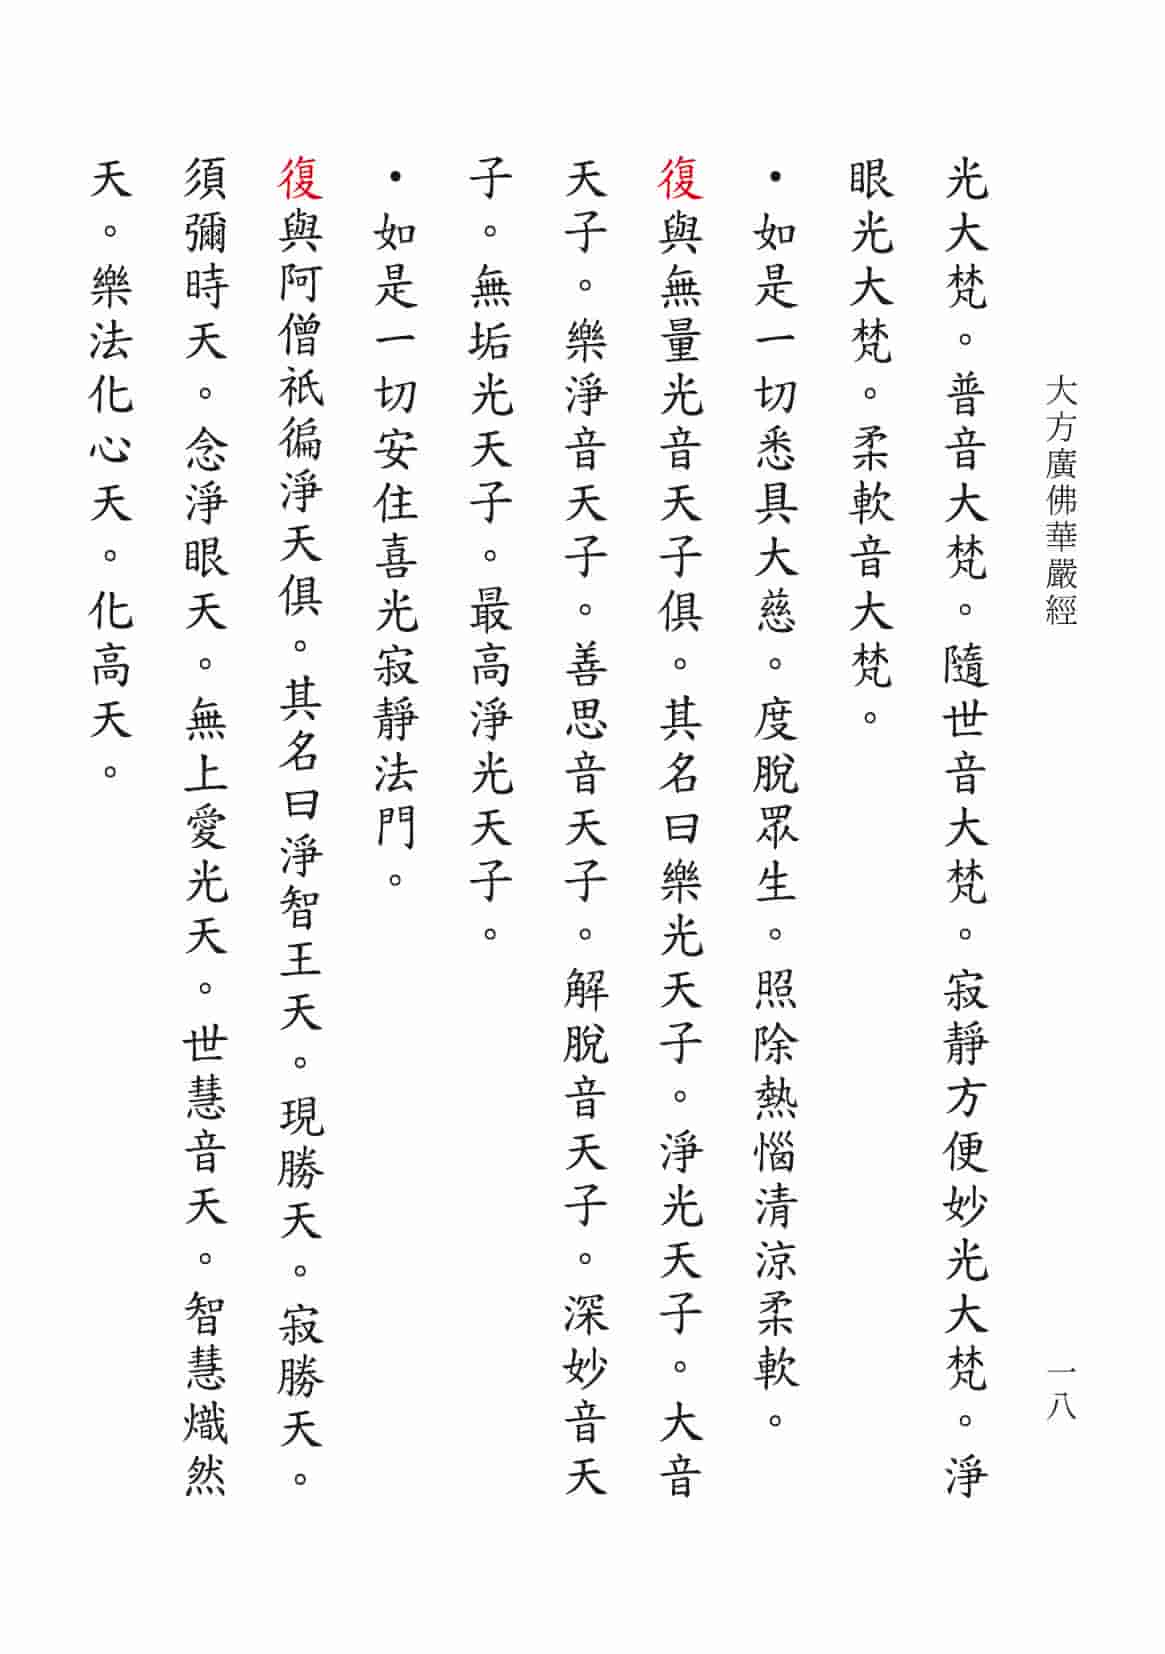 大方廣佛華嚴經
一八
光大梵。普音大梵。隨世音大梵。寂靜方便妙光大梵。淨
眼光大梵。柔軟音大梵。
•如是一切悉具大慈。度脫眾生。照除熱惱清涼柔軟。
復與無量光音天子俱。其名曰樂光天子。淨光天子。大音
天子。樂淨音天子。善思音天子。解脫音天子。深妙音天
子。無垢光天子。最高淨光天子。
•如是一切安住喜光寂靜法門。
復與阿僧祇徧淨天俱。其名曰淨智王天。現勝天。寂勝天。
須彌時天。念淨眼天。無上愛光天。世慧音天。智慧熾然
天。樂法化心天。化高天。